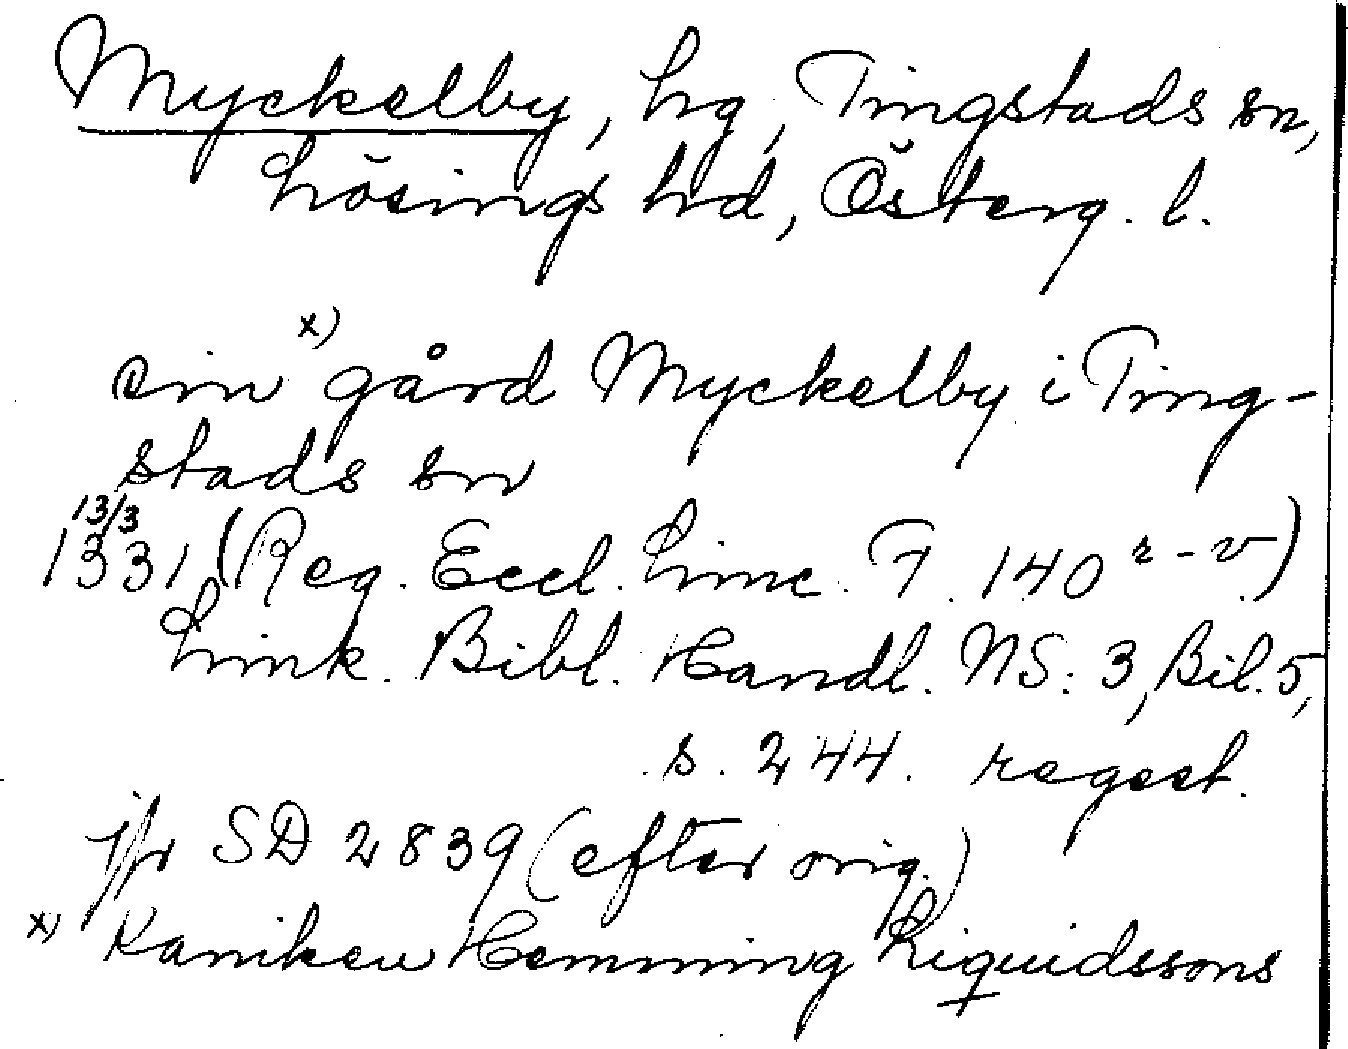 Myckelby, hg, Tingstads sn,
Lösings hd, Österg. l.
x)
sin gård Myckelby i Ting-
stads sn
13/3
1331 (Reg. Eccl. Linc. F. 140 r-v)
Link. Bibl. Handl. NS: 3, Bil. 5,
s. 244. regest.
jfr SD 2839 (efter orig.)
x) Kaniken Hemming Liquidssons